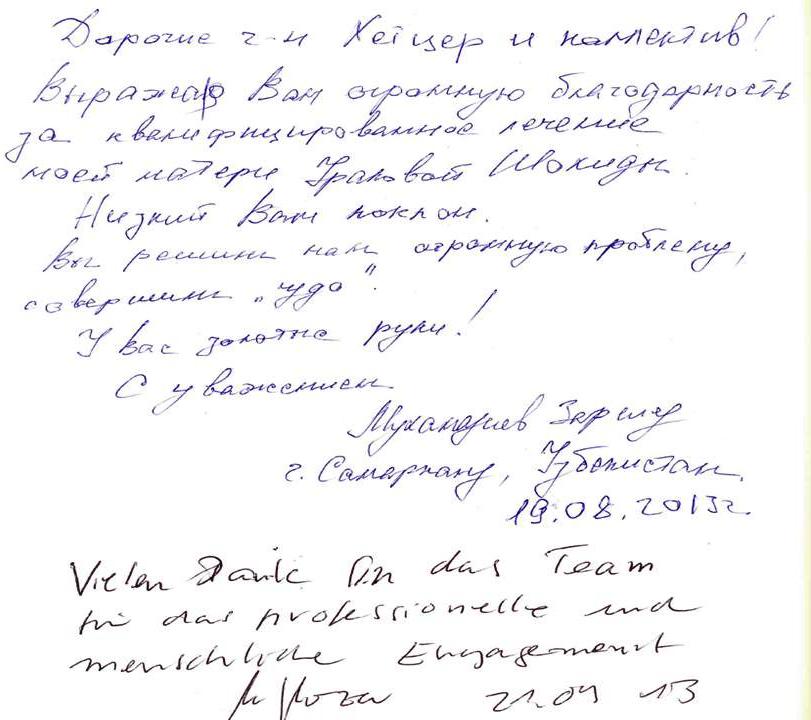 Дорогие г-н Хетцер и коллектив!
Выражаю Вам огромную благодарность
за квалифицированное лечение
моей матери Ураковой Шохиды.
Низкий Вам поклон.
Вы решили нам огромную проблему,
совершили „чудо".
У вас золотые руки!
С уважением
Зоршед
г. Самарканд, Узбекистан.
19.08.2013г.
Vielen Dank an das Team
für das professionelle und
menschliche Engagement
13